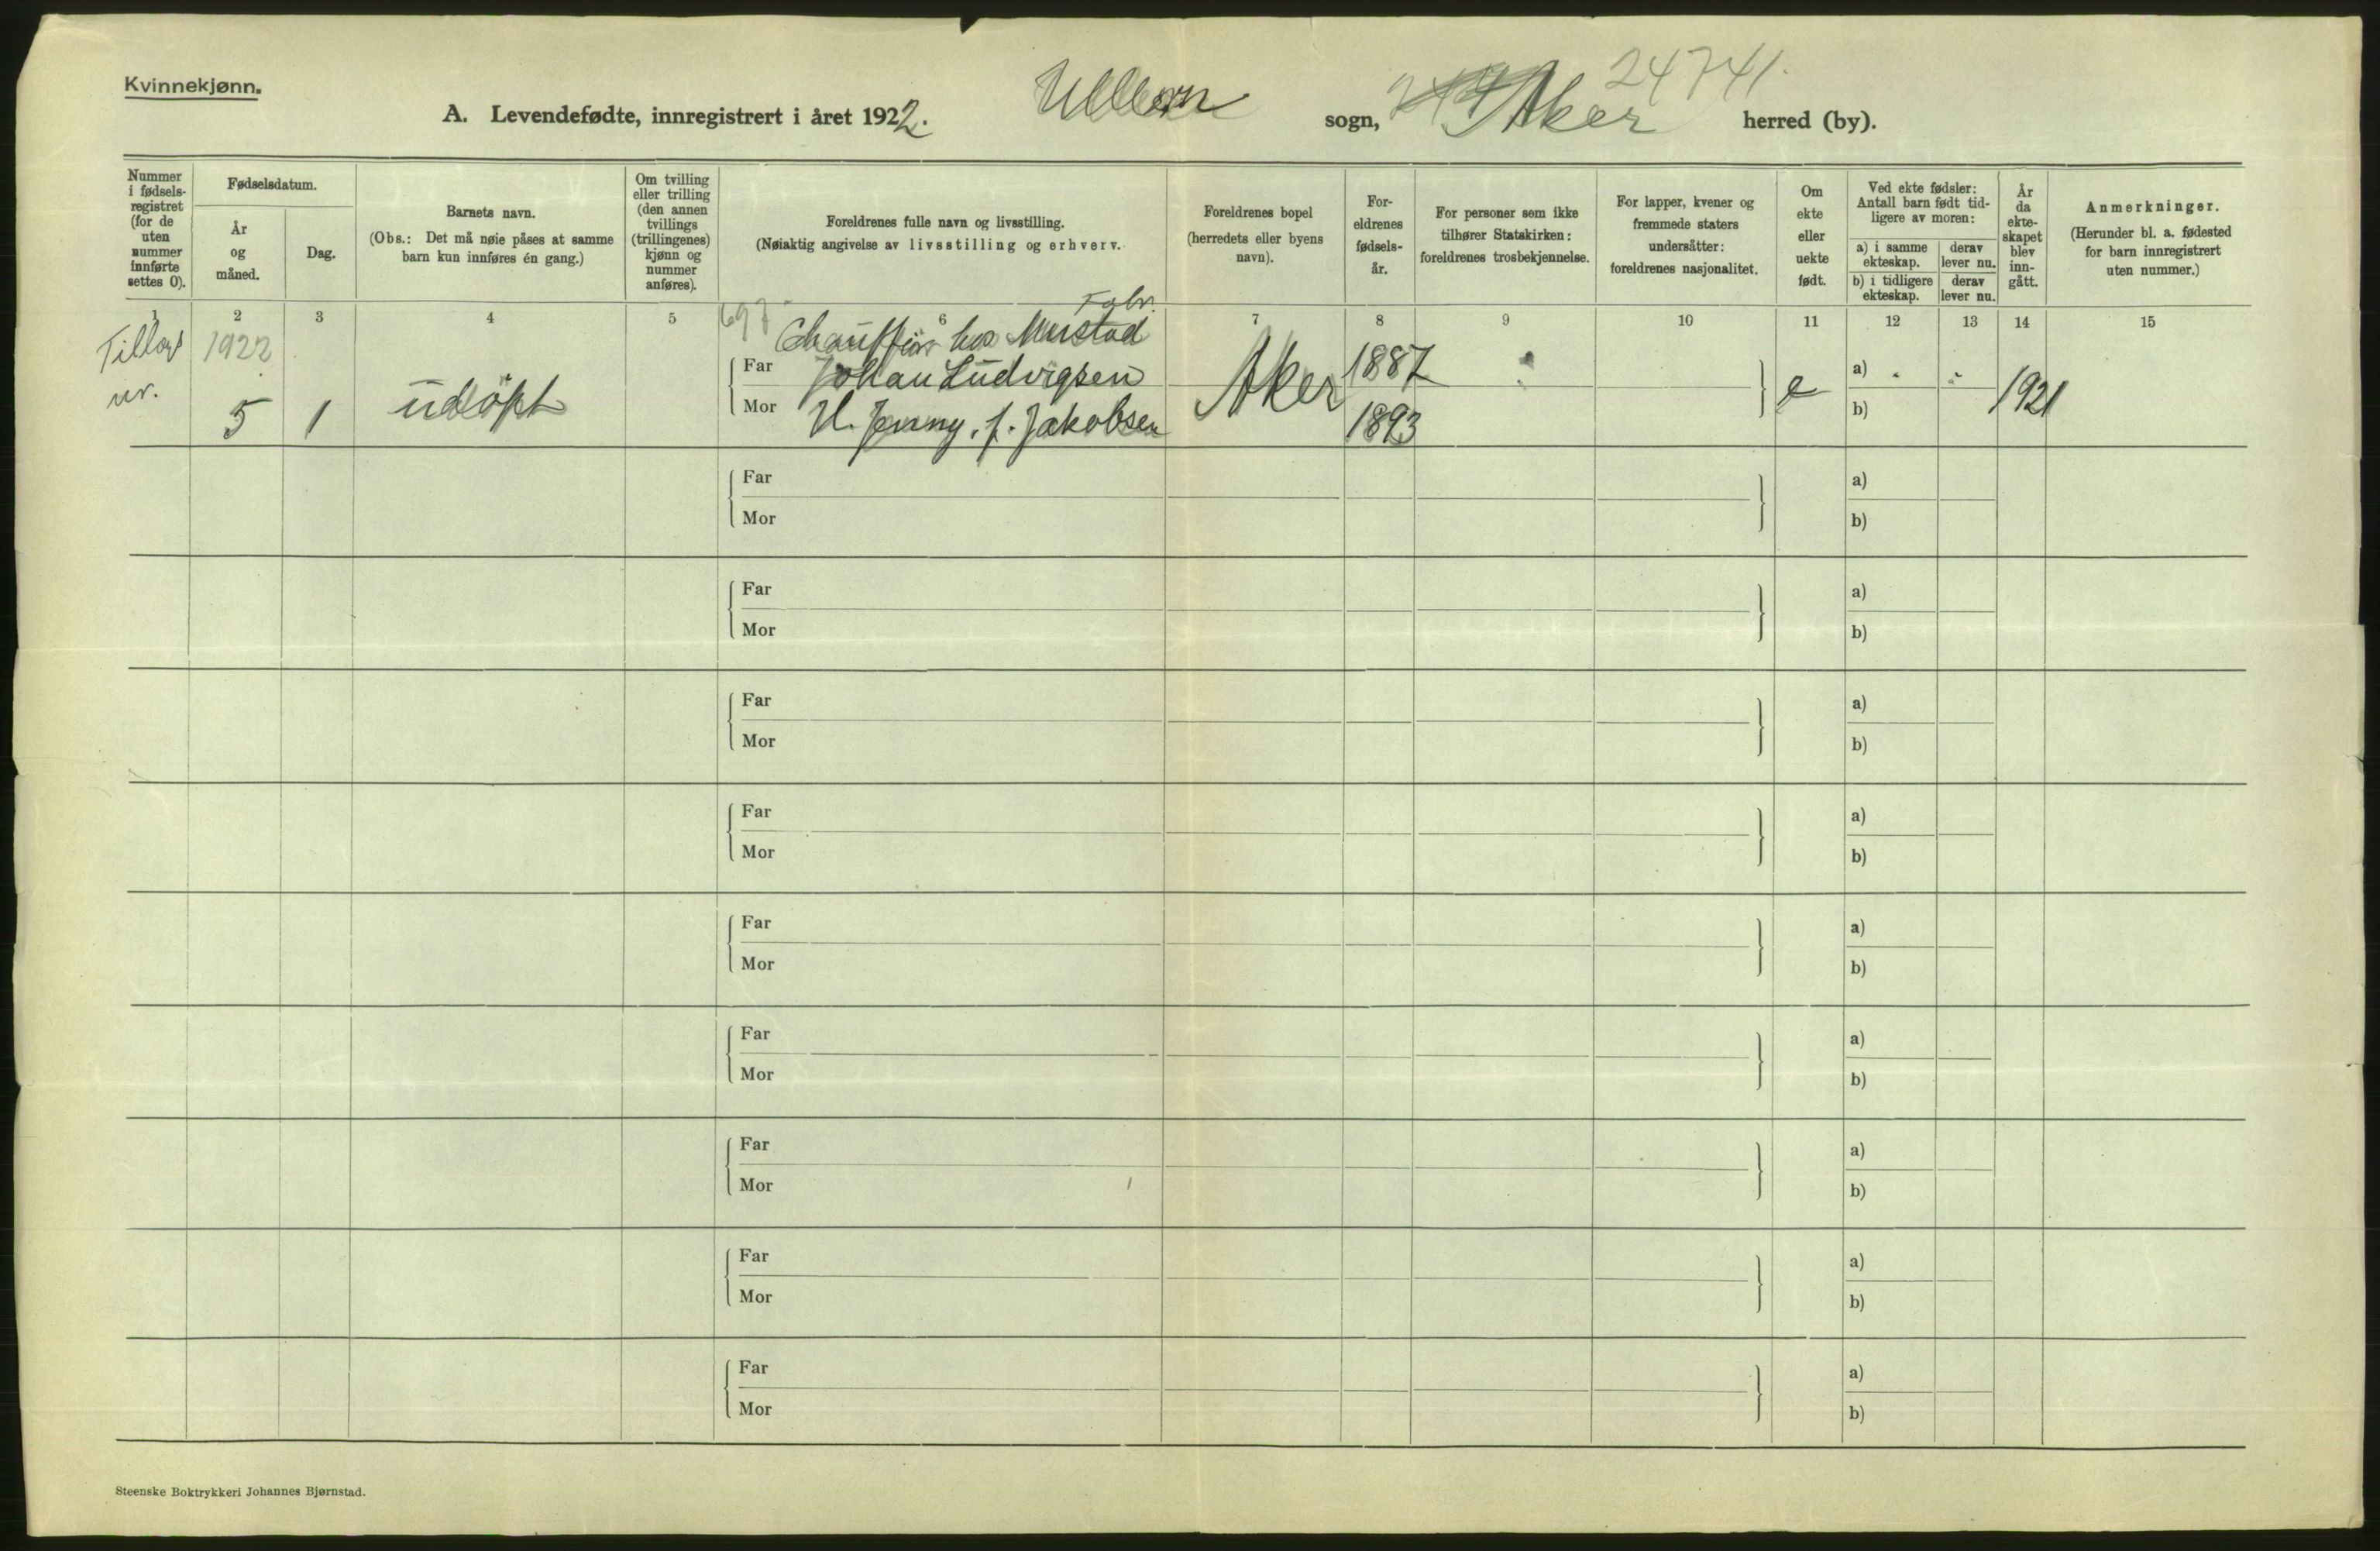 Kvinnekjønn.
A. Levendefødte, innregistrert i året 1922. Ullern sogn, Aker herred (by).
24741.
Nummer i fødsels- registret (for de uten nummer innførte settes 0).
Fødselsdatum.
År og måned.
Dag.
Barnets navn.
(Obs.: Det må nøie påses at samme barn kun innføres én gang.)
Om tvilling eller trilling (den annen tvillings (trillingenes) kjønn og nummer anføres).
Foreldrenes fulle navn og livsstilling.
(Nøiaktig angivelse av livsstilling og erhverv.
Foreldrenes bopel (herredets eller byens navn).
For- eldrenes fødsels- år.
For personer som ikke tilhører Statskirken: foreldrenes trosbekjennelse.
For lapper, kvener og fremmede staters undersåtter: foreldrenes nasjonalitet.
Om ekte eller uekte født.
Ved ekte fødsler: Antall barn født tid- ligere av moren:
a) i samme ekteskap.
derav lever nu.
b) i tidligere ekteskap.
derav lever nu.
År da ekte- skapet blev inn- gått.
Anmerkninger.
(Herunder bl. a. fødested for barn innregistrert uten nummer.)
1 2 3 4 5 6 7 8 9 10 11 12 13 14 15
697 Fabr.
Chauffør hos Mustad
Tillægs 1922
nr. 5 1 udöpt
Far Johan Ludvigsen Aker 1887 e a) 1921
Mor H. Jenny, f. Jakobsen 1893 b)
Far a)
Mor b)
Far a)
Mor b)
Far a)
Mor b)
Far a)
Mor b)
Far a)
Mor b)
Far a)
Mor b)
Far a)
Mor b)
Far a)
Mor b)
Far a)
Mor b)
Steenske Boktrykkeri Johannes Bjørnstad.